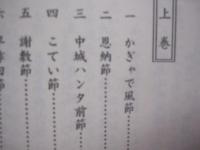 上巻
一 かぎやで風節
二 恩納節
三 中城ハンタ前節
四 こてい節
五 謝敷節
六